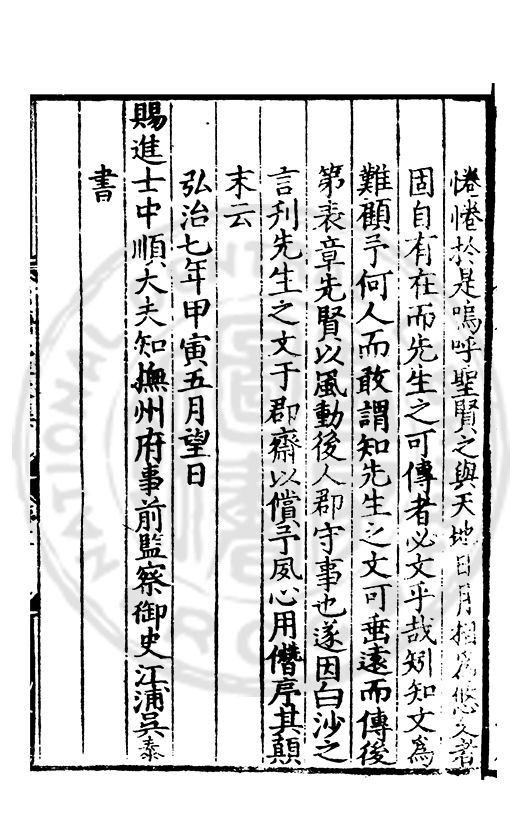 惓惓扵是嗚呼聖賢之與天地日月相爲悠久者
固自有在而先生之可傳者必文乎哉矧知文爲
難顧予何人而敢謂知先生之文可垂遠而傳後
第表章先賢以風動後人郡守事也遂因白沙之
言刋先生之文于郡齋以償予夙心用僭序其顛
末云
弘治七年甲寅五月望日
賜進士中順大夫知撫州府事前監察御史江浦吳泰
書